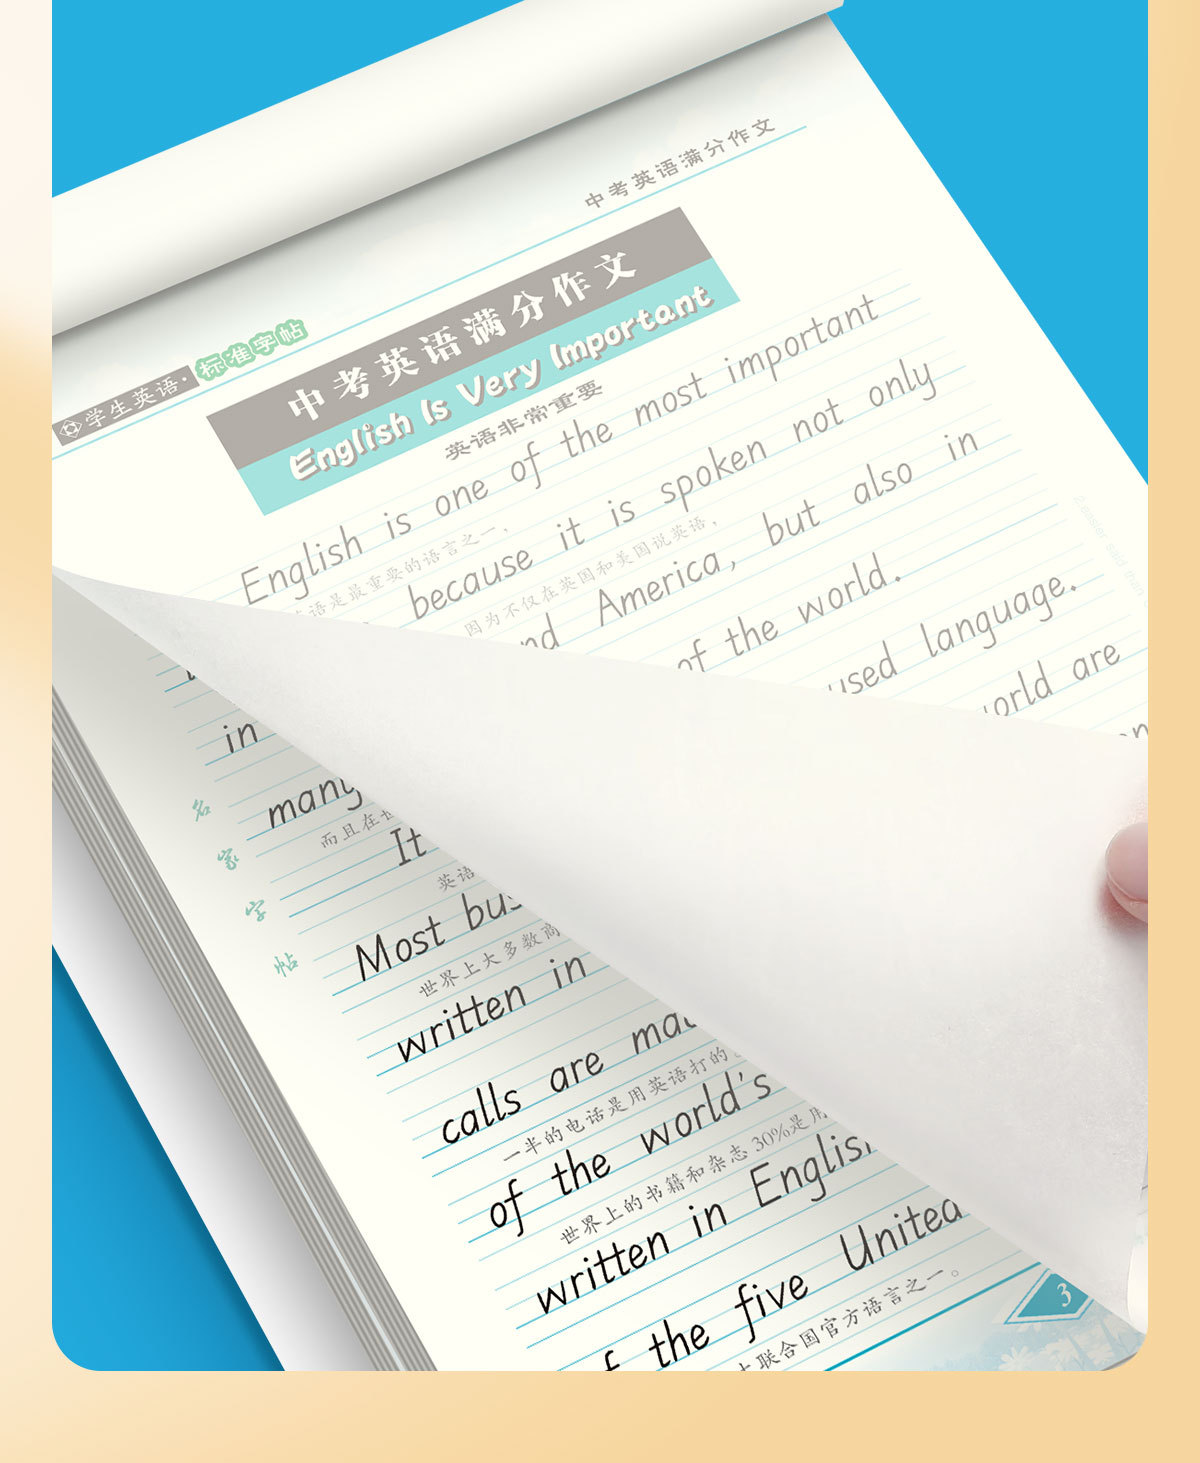 中考英语满分作文
学生英语·标准字帖
中考英语满分作文
English Is Very Important
英语非常重要
English is one of the most important
语是最重要的语言之一，
because it is spoken not only
因为不仅在英国和美国说英语，
America, but also in
in
of the world.
many
used language.
而且在世
It
world are
英语
Most
世界上大多数商
written in
calls are
一半的电话是用英语打的
of the world's
世界上的书籍和杂志30%是用
written in English
the five United
联合国官方语言之一。
名家字帖
3